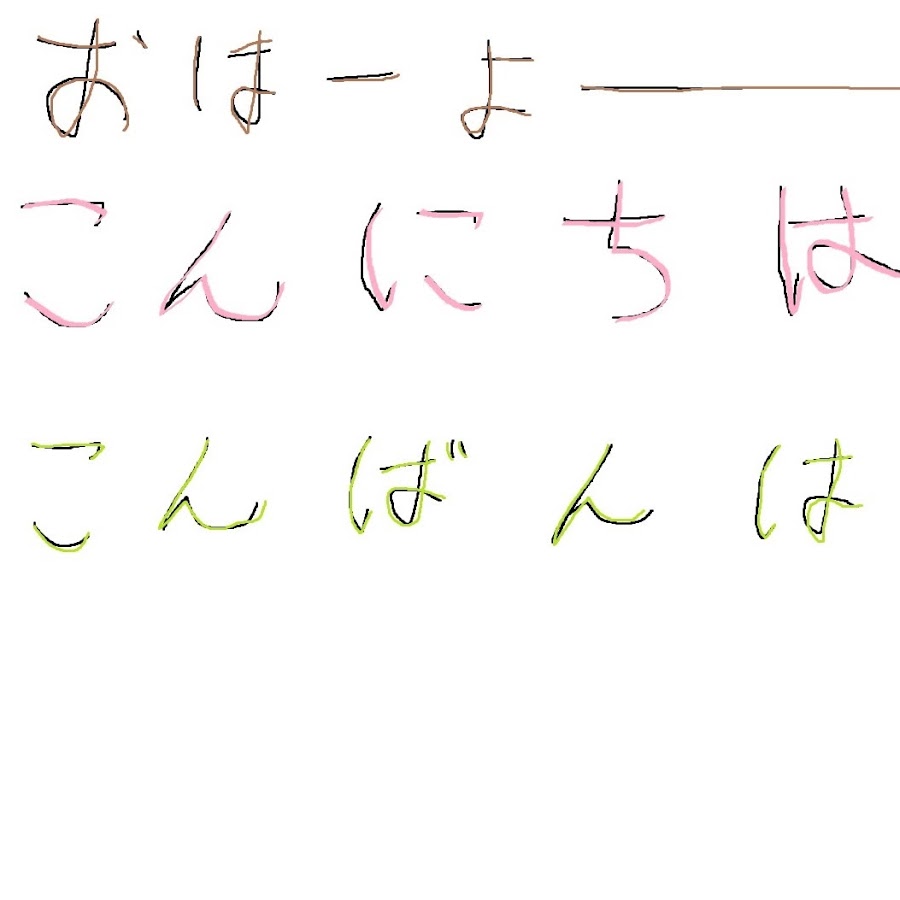 おはーよー
こんにちは
こんばんは